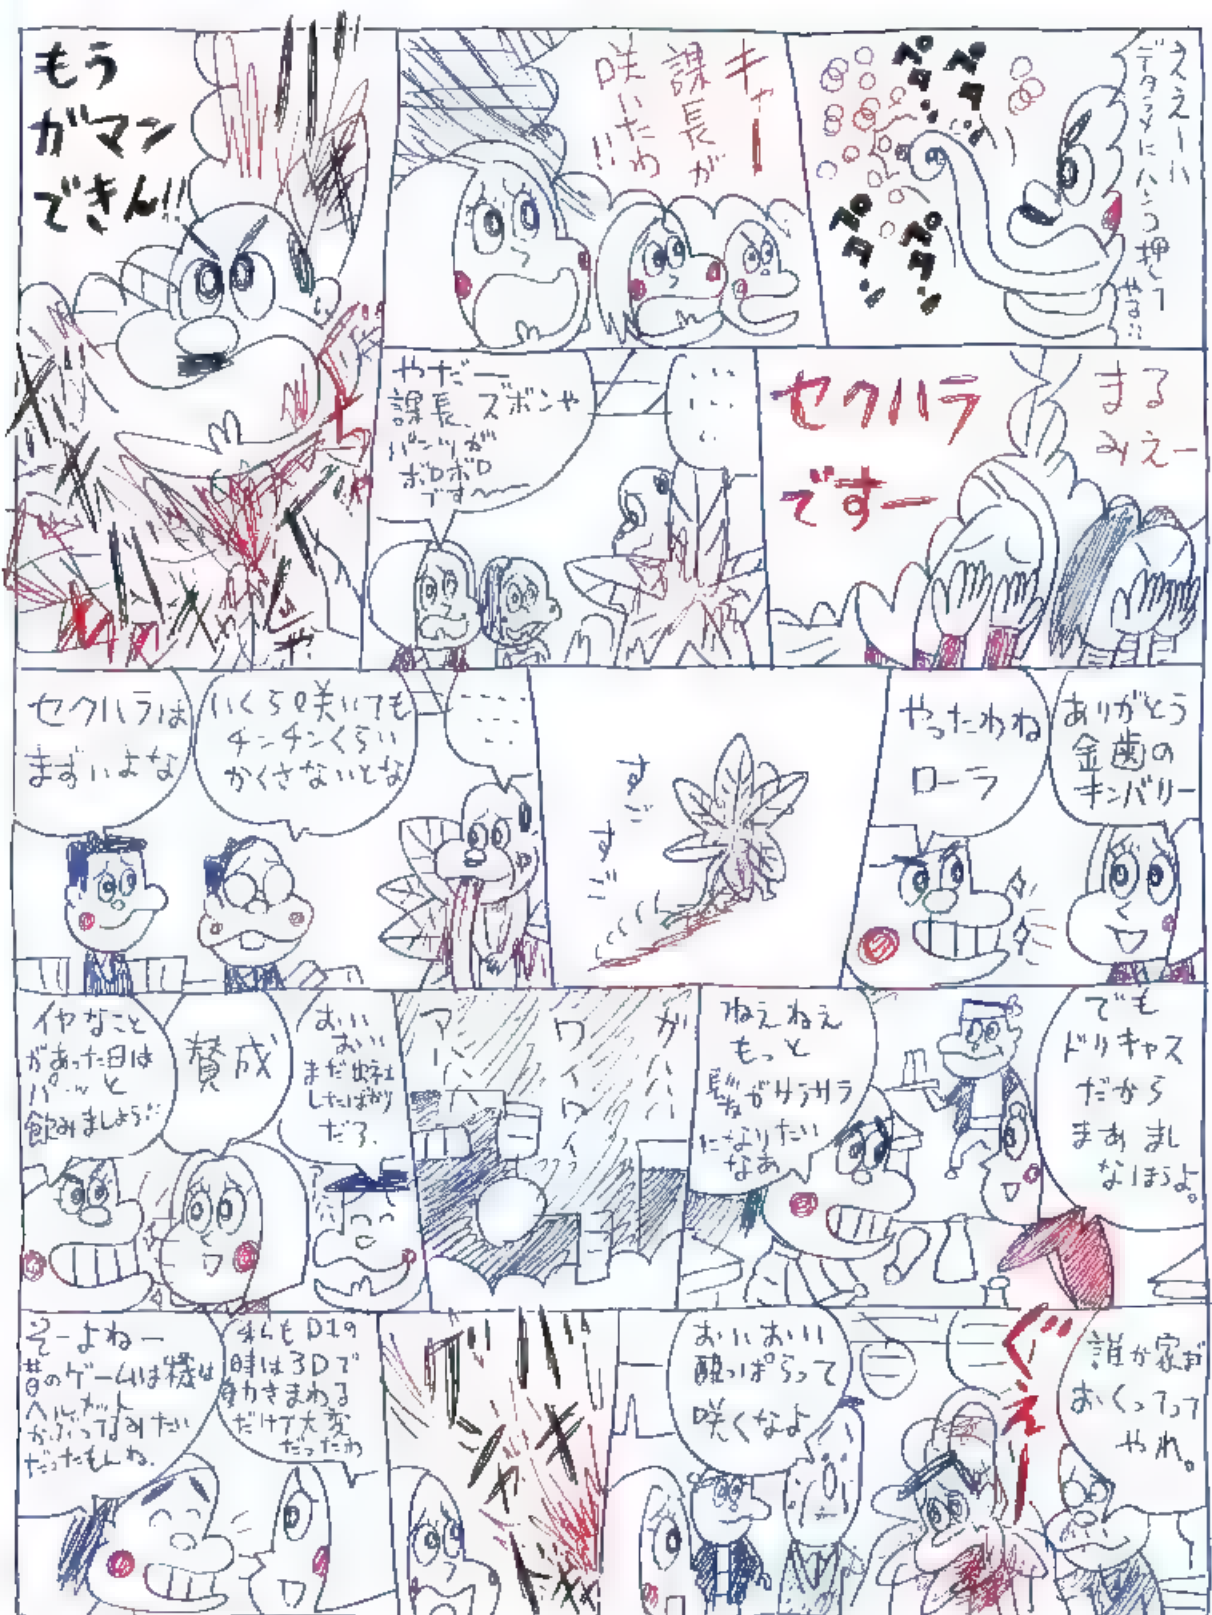 ええーい
デタラメにハンコ押して
やる!!
ペタペタ
ペタペタン
キャー
課長が
咲いたわ
!!
もう
ガマン
できん!!
まる
みえー
セクハラ
ですー
やだー
課長、ズボンや
パンツが
ボロボロ
ですー
ありがとう
金歯の
キンバリー
やったわね
ローラ
すご
すご
いくら咲いても
チンチンくらい
かくさないとな
セクハラは
まずいよな
でも
ドリキャス
だから
まあまし
なほうよ。
ねえねえ
もっと
髪がサラサラ
になりたい
なあ
ガハハハ
ワイワイ
アハハハ
おいおい
まだ出社
したばかり
だろ、
賛成
イヤなこと
があった日は
パーッと
飲みましょう!!
誰か家まで
おくってって
やれ。
ぐえー
おいおい
酔っぱらって
咲くなよ
私もD1の
時は3Dで
動きまわる
だけで大変
だったわ
そーよねー
昔のゲーム機は
ヘルメット
かぶってるみたい
だったもんね、